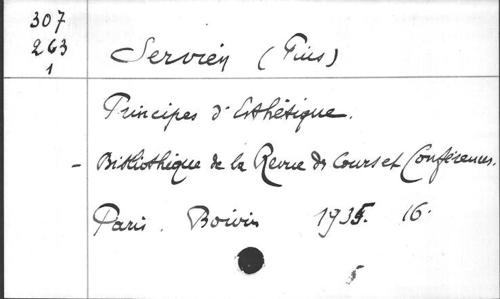 307
263
1
Servien (Pius)
Principes d'Esthétique.
- Bibliothique de la Revue ds Cours et Conférences.
Paris. Boivin 1935. 16.